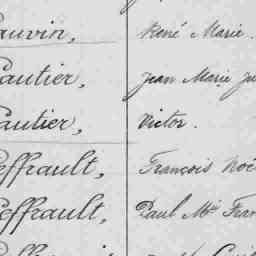 auvin, René Marie.
autier, Jean Marie Ju
autier, Victor.
effrault, François Noë
effrault, Paul Mie Fran